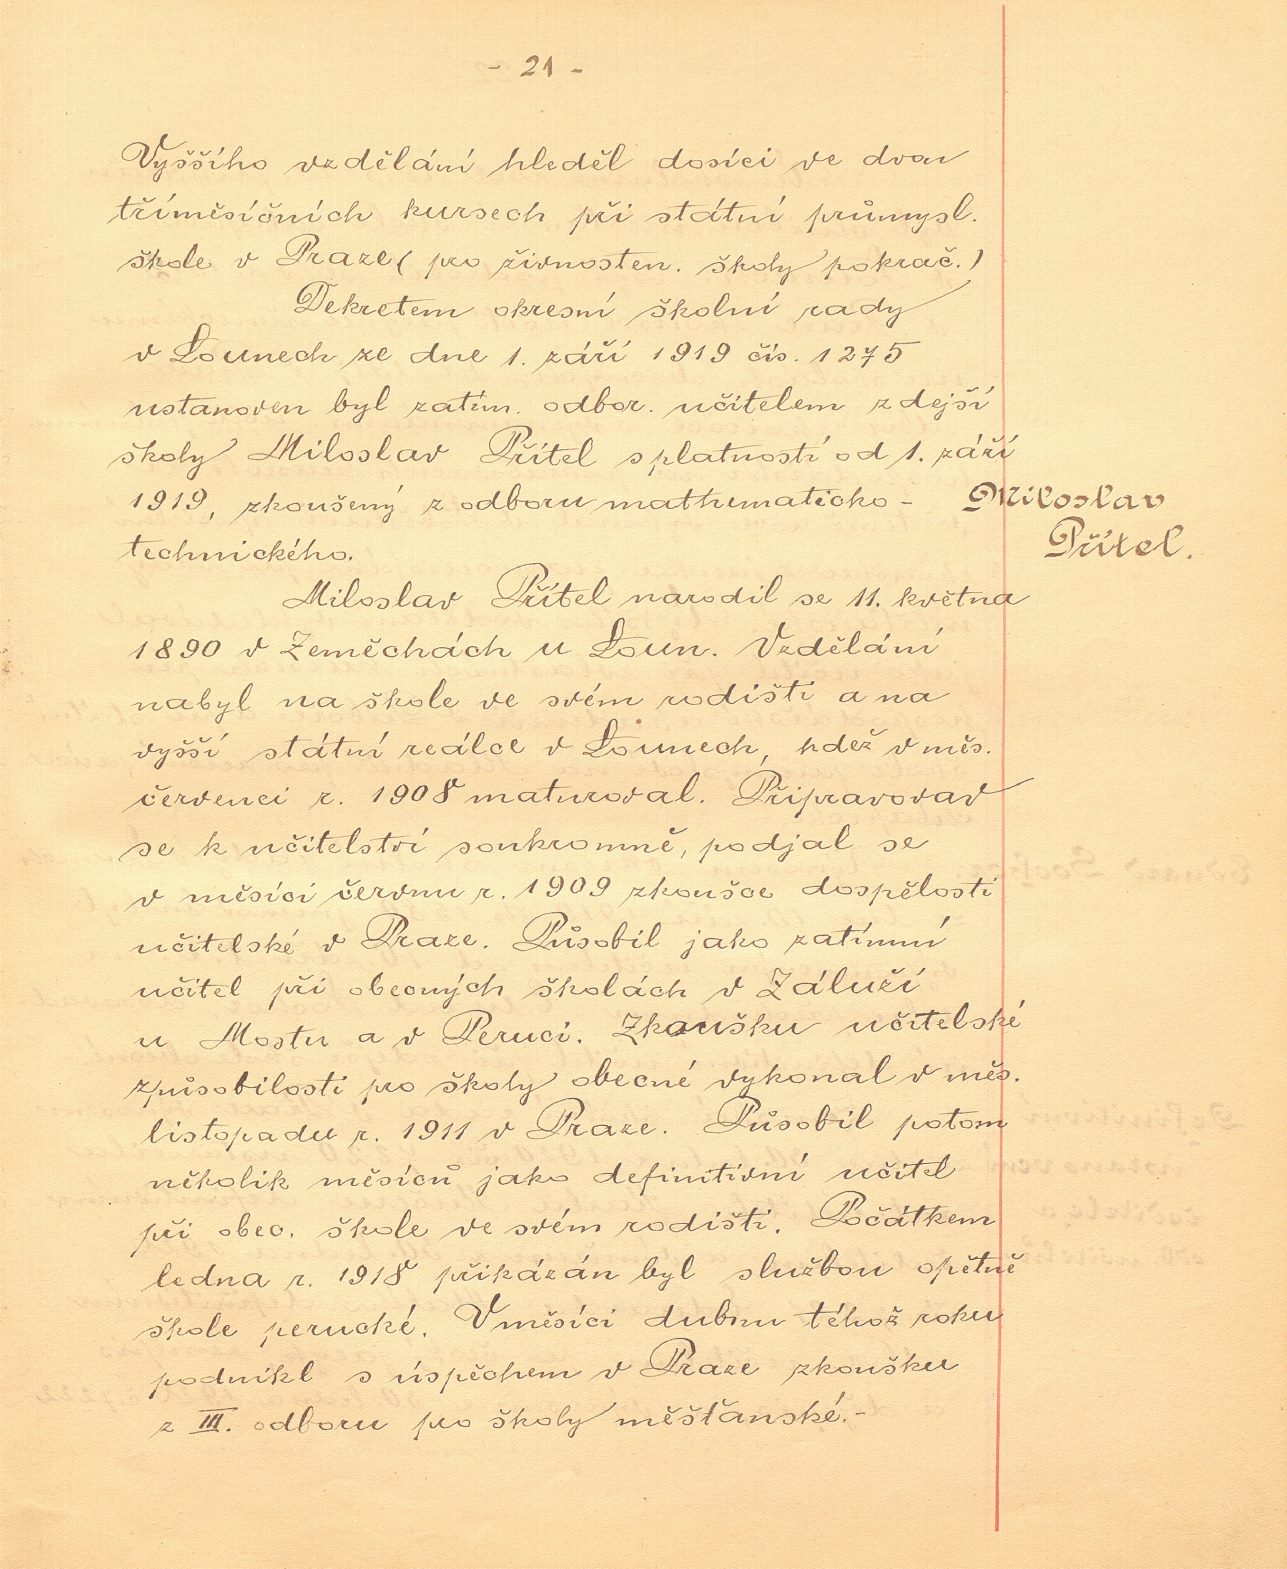 - 21 -
Vyššího vzdělání hleděl dosíci ve dvou
tříměsíčních kursech při státní průmysl.
škole v Praze (pro živnosten. školy pokrač.)
Dekretem okresní školní rady
v Lounech ze dne 1. září 1919 čís. 1275
ustanoven byl zatím. odbor. učitelem zdejší
školy Miloslav Přítel s platností od 1. září
1919, zkoušený z odboru mathematicko-
technického.
Miloslav
Přítel.
Miloslav Přítel narodil se 11. května
1890 v Zeměchách u Loun. Vzdělání
nabyl na škole ve svém rodišti a na
vyšší státní reálce v Lounech, kdež v měs.
červenci r. 1908 maturoval. Připravovav
se k učitelství soukromně, podjal se
v měsíci červnu r. 1909 zkoušce dospělosti
učitelské v Praze. Působil jako zatímní
učitel při obecných školách v Záluží
u Mostu a v Peruci. Zkoušku učitelské
způsobilosti pro školy obecné vykonal v měs.
listopadu r. 1911 v Praze. Působil potom
několik měsíců jako definitivní učitel
při obec. škole ve svém rodišti. Počátkem
ledna r. 1918 přikázán byl službou opětně
škole perucké. V měsíci dubnu téhož roku
podnikl s úspěchem v Praze zkoušku
z III. odboru pro školy měšťanské.-